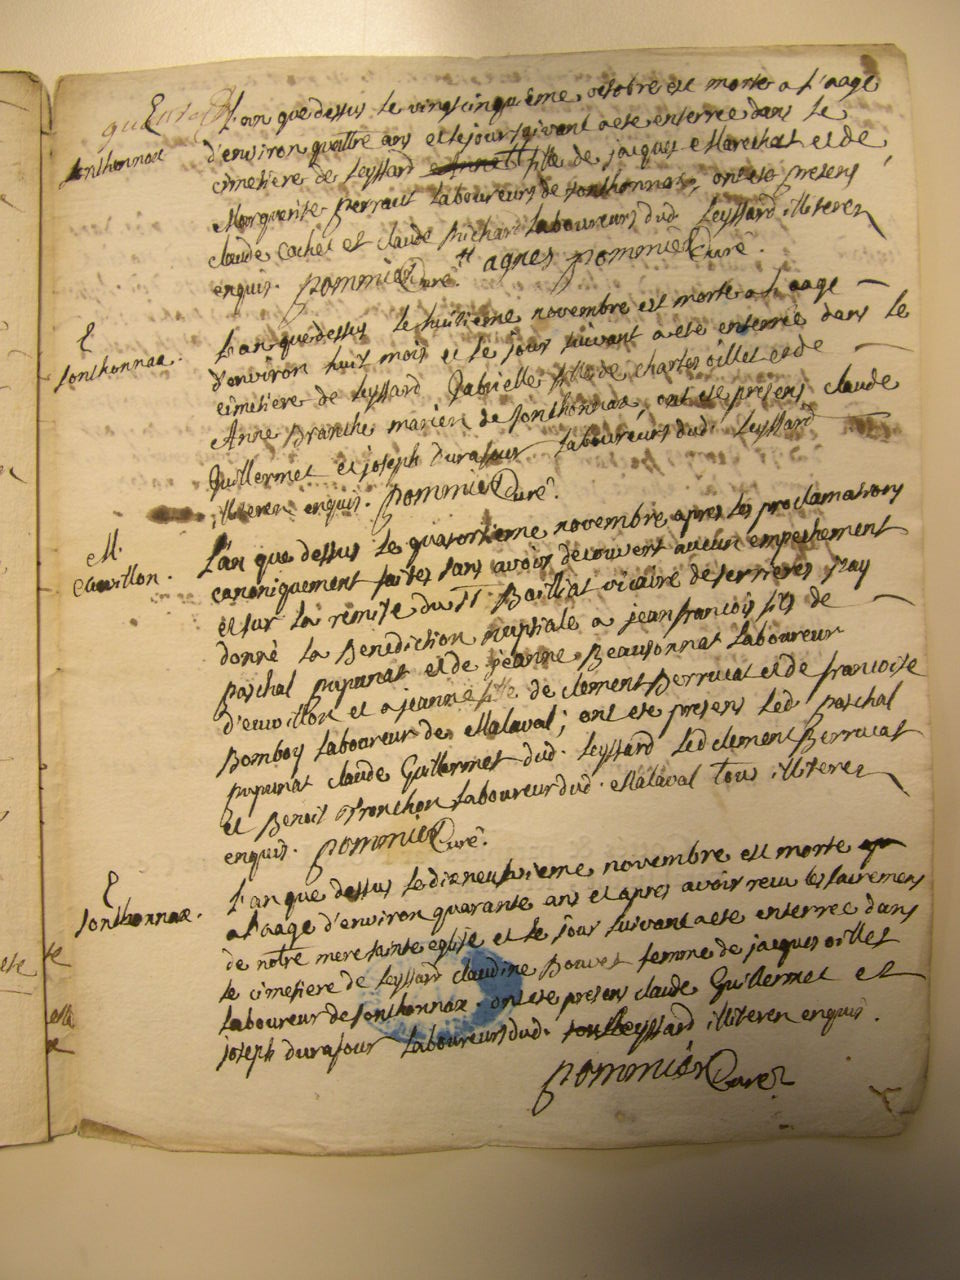 E
Sonthonnax
L'an que dessus le vingtcinquième octobre est morte a l'aage
d'environ quattre ans et le jour suivant a ete enterree dans le
cimetiere de Leyssard fille de jacques Marechat et de
Marguerite perraut Laboureurs de sonthonnax, ont ete presens
claude Cochet et claude Richard Laboureurs dud. Leyssard illiterez
enquis. pommier Curé. # agnes pommier Curé.
E
sonthonnax.
L'an que dessus le huitieme novembre est morte a l'aage
d'environ huit mois et le jour suivant a ete enterrée dans le
cimetiere de Leyssard Gabrielle fille de charles oillet et de
Anne Branche mariez de sonthonnax, ont ete presens claude
Guillermet et joseph Durafour Laboureurs dud. Leyssard
illiterez enquis. pommier Curé.
M.
L'an que dessus le quatorzieme novembre apres les proclamations
canoniquement faites sans avoir decouvert aucun empeschement
et sur la remise du Sr Bailliat vicaire de serrieres j'ay
donné la Benediction nuptiale a jean francois fils de
paschal pupunat et de jeanne Beausonnat Laboureur
et a jeanne fille de clement Berrucat et de francoise
Bomboy Laboureur de Malaval; ont ete presens Led. paschal
pupunat claude Guillermet dud. Leyssard Led clement Berrucat
et Benoit Laboureur dud. Malaval Tous illiterez
enquis. pommier Curé.
E
sonthonnax.
L'an que dessus le dixneufvieme novembre est morte
a l'aage d'environ quarante ans et apres avoir recu les sacremens
de notre mere sainte eglise et le jour suivant a ete enterree dans
le cimetiere de Leyssard claudine Bouvet femme de jacques oillet
Laboureur de sonthonnax. ont ete presens claude Guillermet et
joseph durafour Laboureurs dud. Leyssard illiterez enquis.
pommier Curé